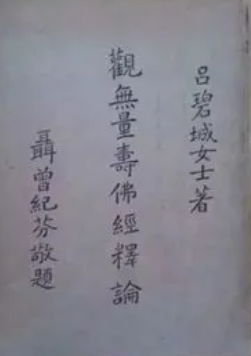 呂碧城女士著
觀無量壽佛經釋論
聶曾紀芬敬題